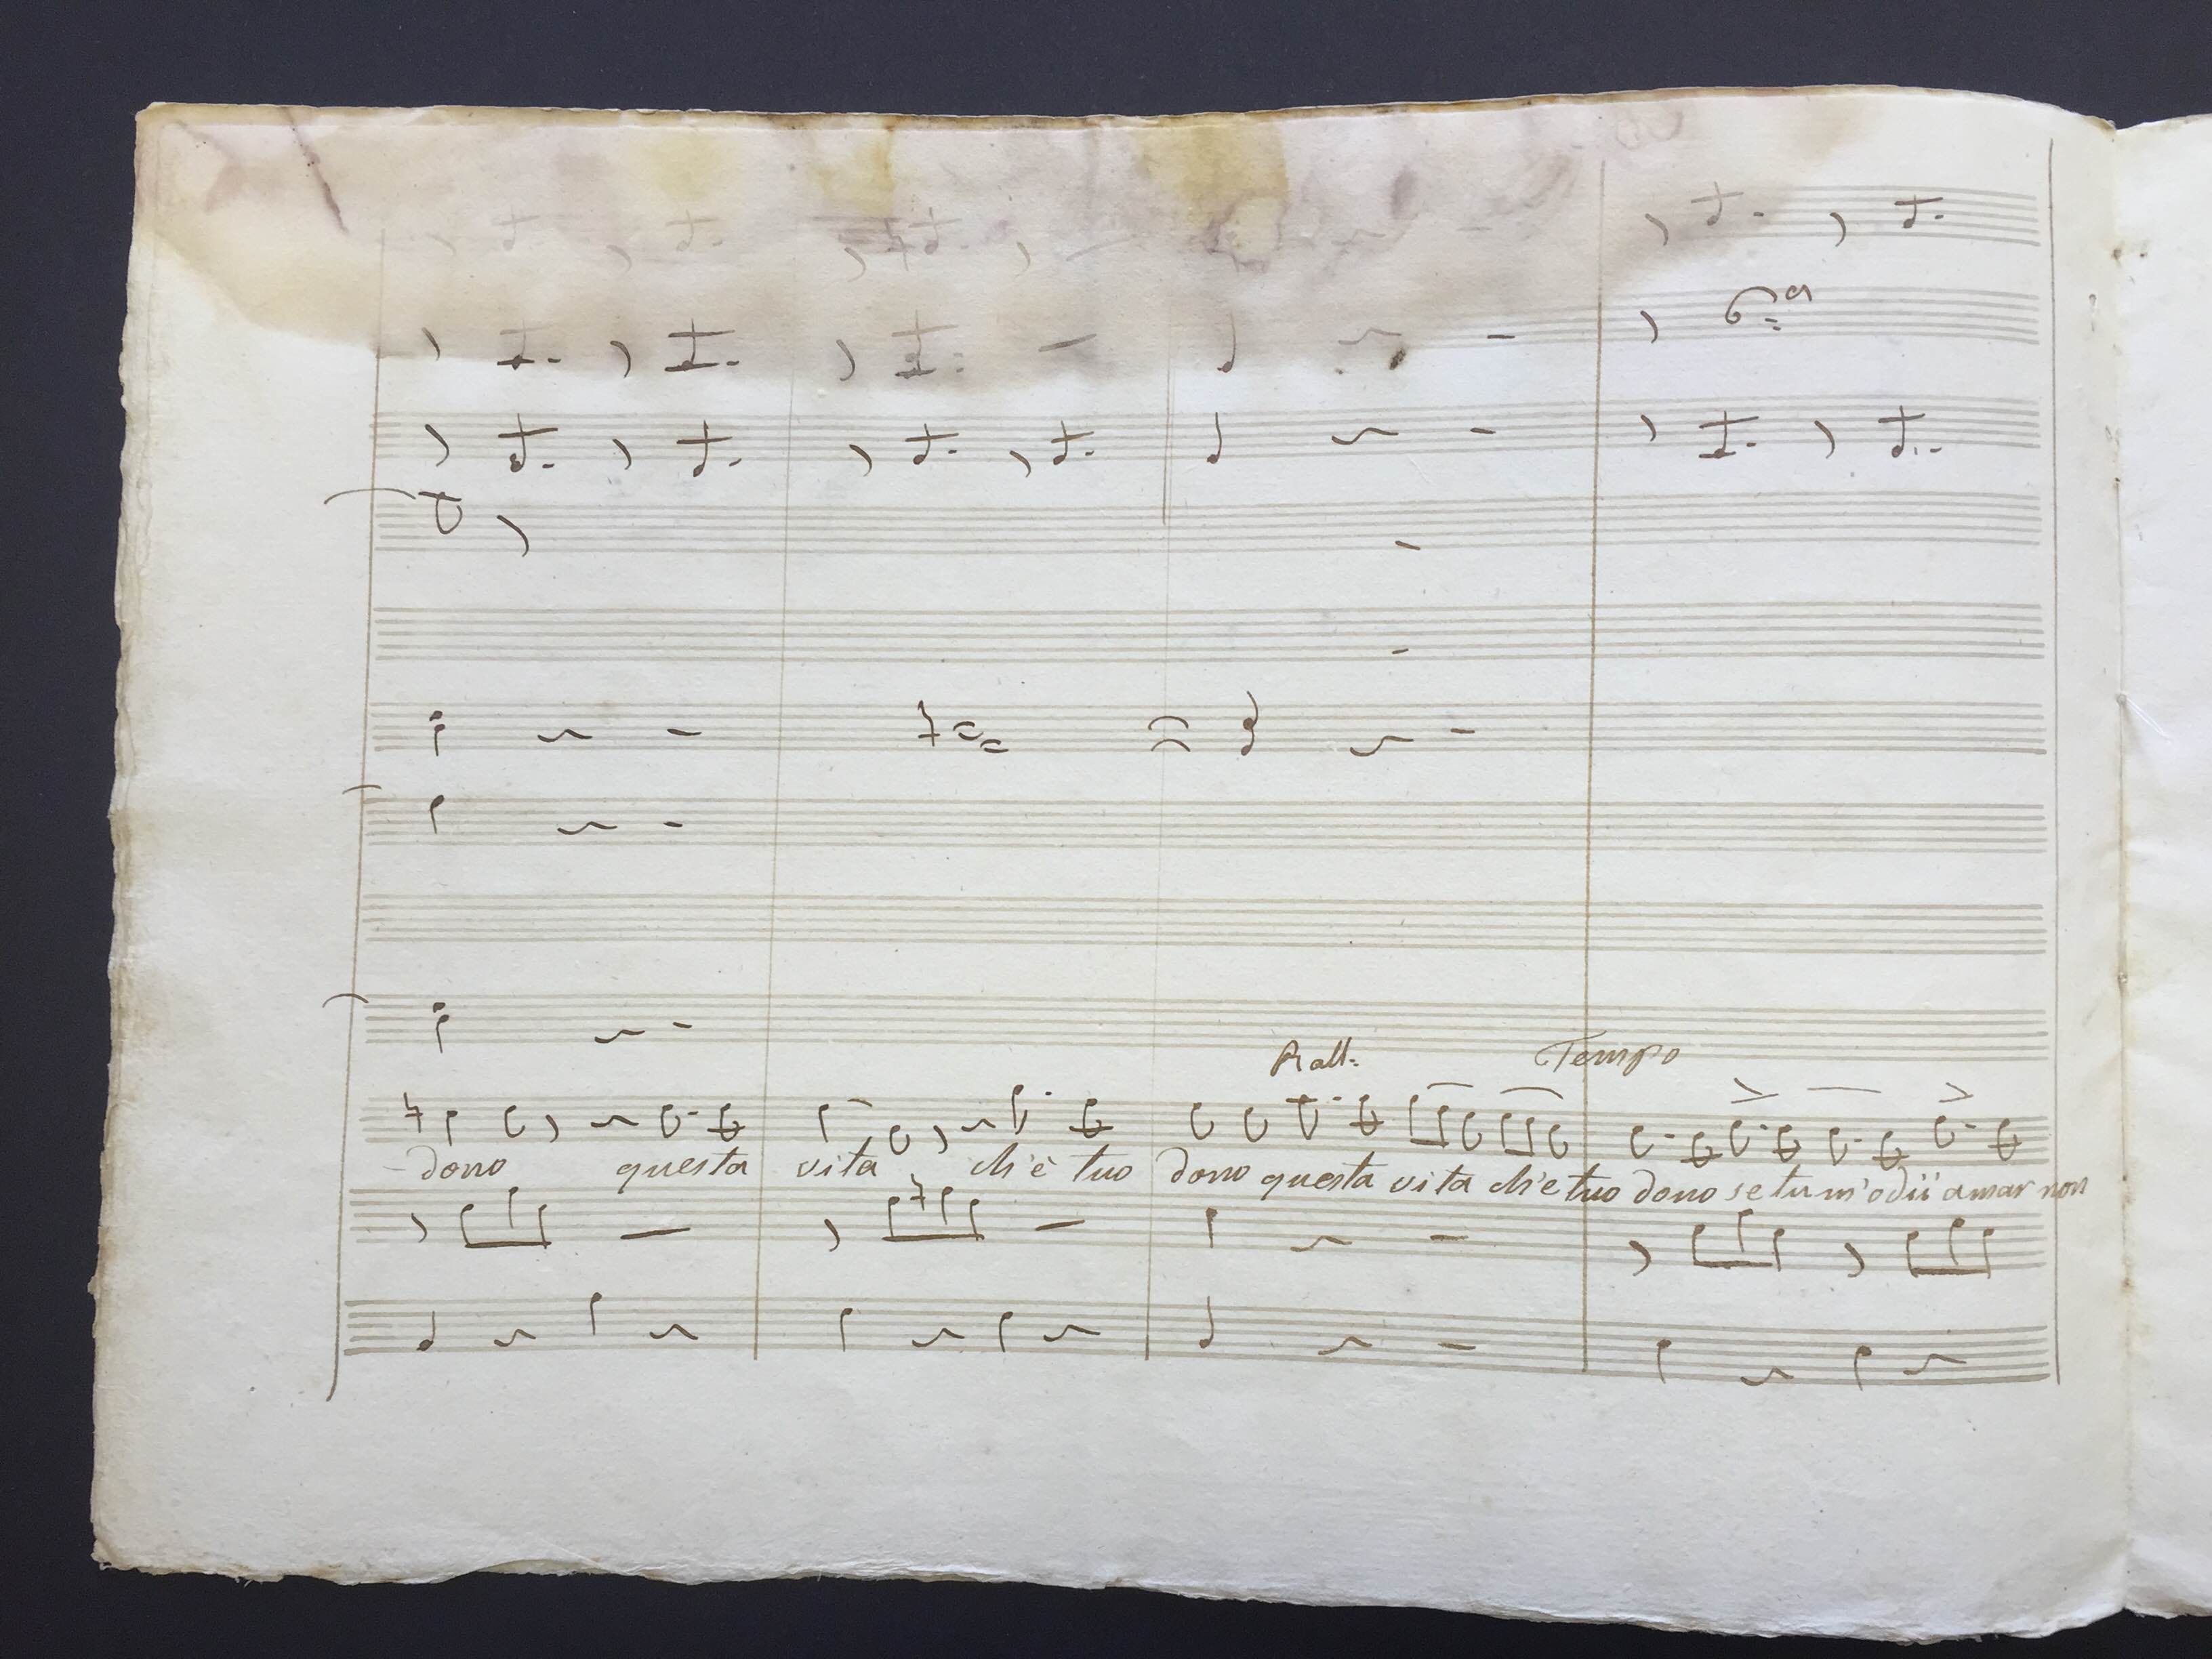 6.a
Rall: Tempo
dono questa vita ch'è tuo dono questa vita ch'e tuo dono se tu m'odii amar non